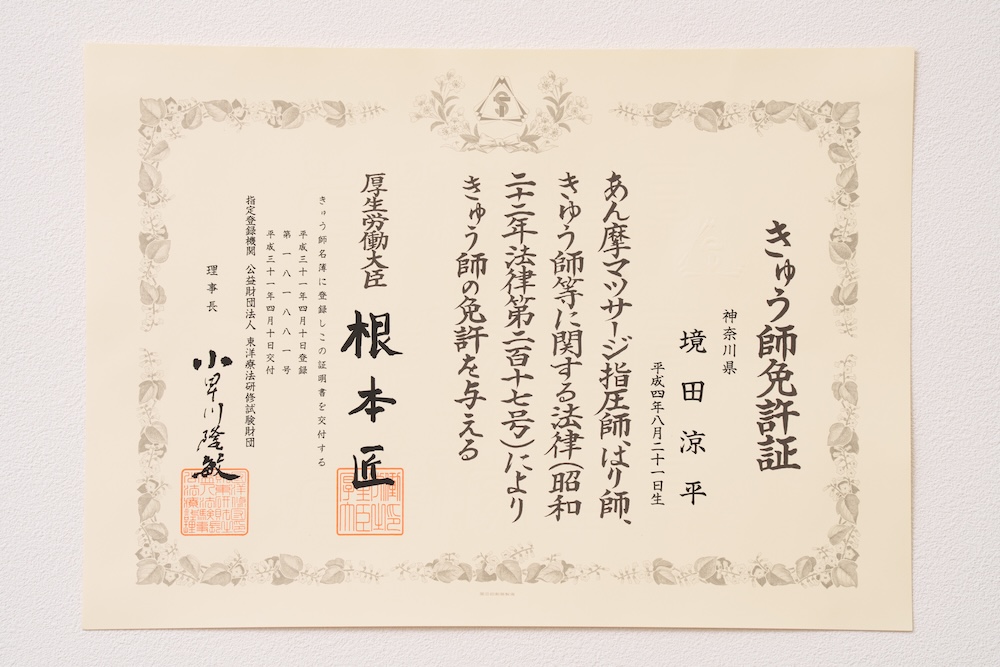 きゅう師免許証
神奈川県
境田涼平
平成四年八月二十一日生
あん摩マツサージ指圧師、はり師、
きゆう師等に関する法律(昭和
二十二年法律第二百十七号)により
きゅう師の免許を与える
厚生労働大臣 根本匠
きゅう師名簿に登録しこの証明書を交付する
平成三十一年四月十日登録
第一八一八八一号
平成三十一年四月十日交付
指定登録機関 公益財団法人 東洋療法研修試験財団
理事長 小早川隆敏